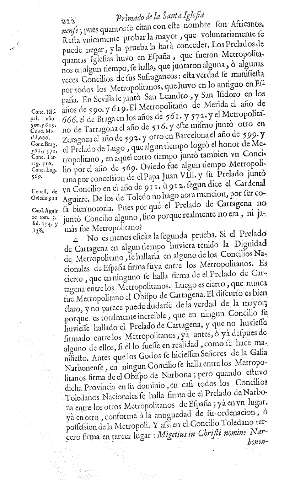 212 Primado de la Santa Iglesia
mense; pues quantos se citan con este nombre son Africanos.
Resta unicamente probar la mayor, que voluntariamente se
puede negar, y la prueba la hará conceder. Los Prelados de
quantas Iglesias huvo en España, que fueron Metropolita-
nos en algun tiempo, se halla, que juntaron alguna, ò algunas
veces Concilios de sus Sufraganeos: esta verdad se manifiesta
por todos los Metropolitanos, que huvo en lo antiguo en Es-
paña. En Sevilla le juntò San Leandro, y San Isidoro en los
años de 590. y 619. El Metropolitano de Merida el año de
666. el de Braga en los años de 561. y 572. y el Metropolita-
no de Tarragona el año de 516. y este mismo juntò otro en
Zaragoza el año de 592. y otro en Barcelona el año de 599. y
el Prelado de Lugo, que algun tiempo logrò el honor de Me-
tropolitano, en aquel corto tiempo juntò tambien un Conci-
lio por el año de 569. Oviedo fue algun tiempo Metropoli-
tana por concession de el Papa Juan VIII. y su Prelado juntò
un Concilio en el año de 911. ò 912. segun dice el Cardenal
Aguirre. De los de Toledo no hago aora mencion, por ser co-
sa bien notoria. Pues por què el Prelado de Cartagena no
juntò Concilio alguno, sino porque realmente no era, ni ja-
màs fue Metropolitano?
2 No es menos eficàz la segunda prueba. Si el Prelado
de Cartagena en algun tiempo huviera tenido la Dignidad
de Metropolitano, se hallaria en alguno de los Concilios Na-
cionales de España firma suya entre los Metropolitanos. Es
cierto, que en ninguno se halla firma de el Prelado de Car-
tagena entre los Metropolitanos. Luego es cierto, que nunca
fue Metropolitano el Obispo de Cartagena. El discurso es bien
claro, y no parece puede dudarse de la verdad de la mayor;
porque es totalmente increible, que en ningun Concilio se
huviesse hallado el Prelado de Cartagena, y que no huviesse
firmado entre los Metropolitanos, yà antes, ò yà despues de
alguno de ellos, si èl lo fuesse en realidad, como se hace ma-
nifiesto. Antes que los Godos se hiciessen Señores de la Galia
Narbonense, en ningun Concilio se halla entre los Metropo-
litanos firma de el Obispo de Narbona; pero quando estuvo
dicha Provincia en su dominio, en casi todos los Concilios
Toledanos Nacionales se halla firma de el Prelado de Narbo-
na entre los otros Metropolitanos de España; yà en un lugar,
yà en otro, conforme à la antiguedad de su ordenacion, ò
possession de la Metropoli. Y assi en el Concilio Toledano ter-
cero firma en tercer lugar: Migetius in Christi nomine Nar-
bonen-